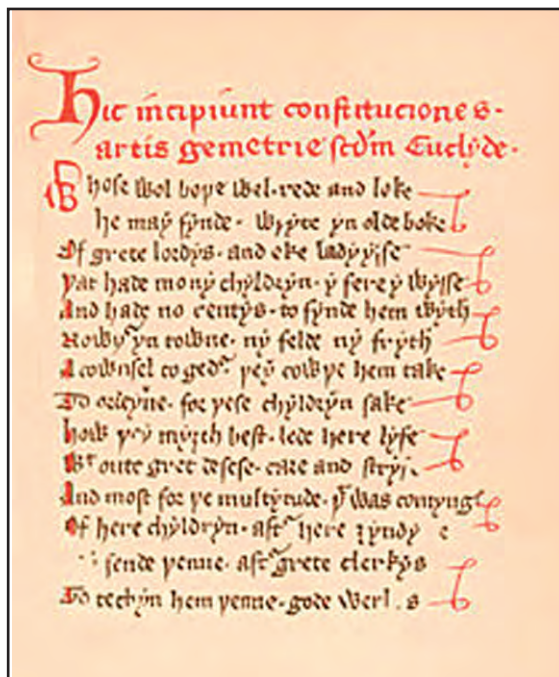 Hic incipiunt constituciones
artis gemetrie scdm Euclyde.
Whose wol boþe wel rede and loke
he may fynde wryte yn olde boke
Of grete lordys. and eke ladyysse
þat hade mony chyldryn y fere y wysse
And hade no rentys. to fynde hem wyth
Nowþ yn towne. ny felde ny fryth
A cownsel to ged þey cowþe hem take
To ordeyne. for þese chyldryn sake
how þey myȝth best. lede here lyfe
Wt oute gret desese. care and stryf
And most for þe multytude. þt was comyng
Of here chyldryn. aft here
sende þenne. aft grete clerkys
To techyn hem þenne. gode